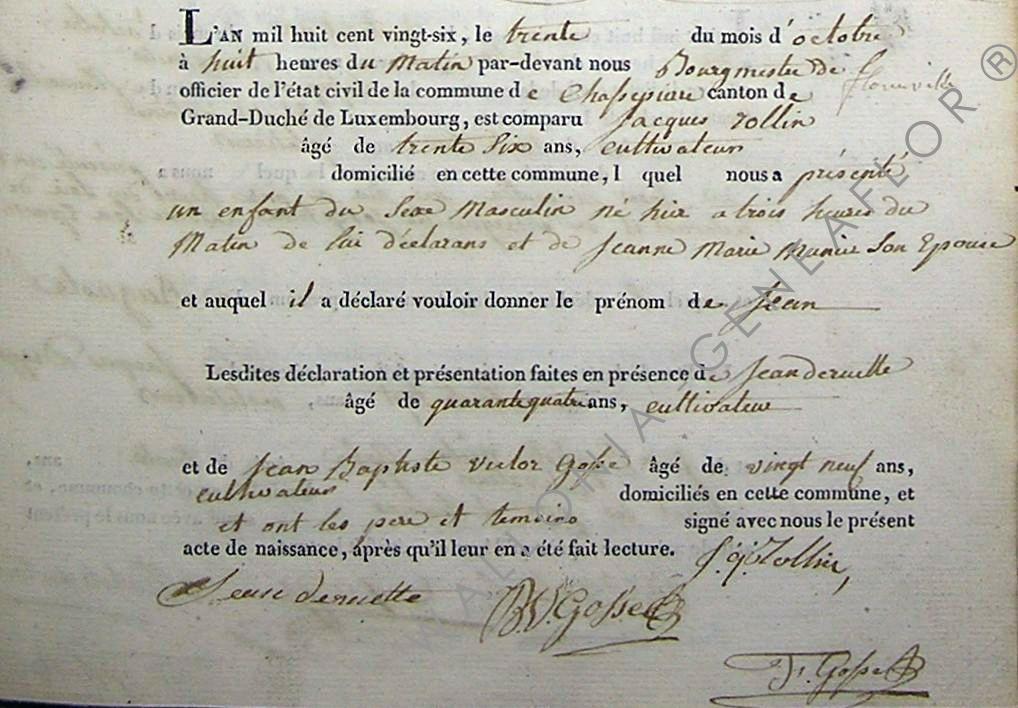 L'AN mil huit cent vingt-six, le trente du mois d'octobre
à huit heures du Matin par-devant nous Bourgmestre de
officier de l'état civil de la commune de Chassepierre canton de florenville
Grand-Duché de Luxembourg, est comparu Jacques rollin
âgé de trente Six ans, cultivateur
domicilié en cette commune, l quel nous a présenté
un enfant du Sexe Masculin né hier a trois heures du
Matin de lui déclarans et de Jeanne Marie Son Epouse
et auquel il a déclaré vouloir donner le prénom de Jean
Lesdites déclaration et présentation faites en présence de Jean
âgé de quarante quatre ans, cultivateur
et de Jean Baptiste victor Gosse âgé de vingt neuf ans,
cultivateur domiciliés en cette commune, et
et ont les pere et temoins signé avec nous le présent
acte de naissance, après qu'il leur en a été fait lecture.
rollin
B.V. Gosse
Gosse
WALLONIA GENEAFLOR ®